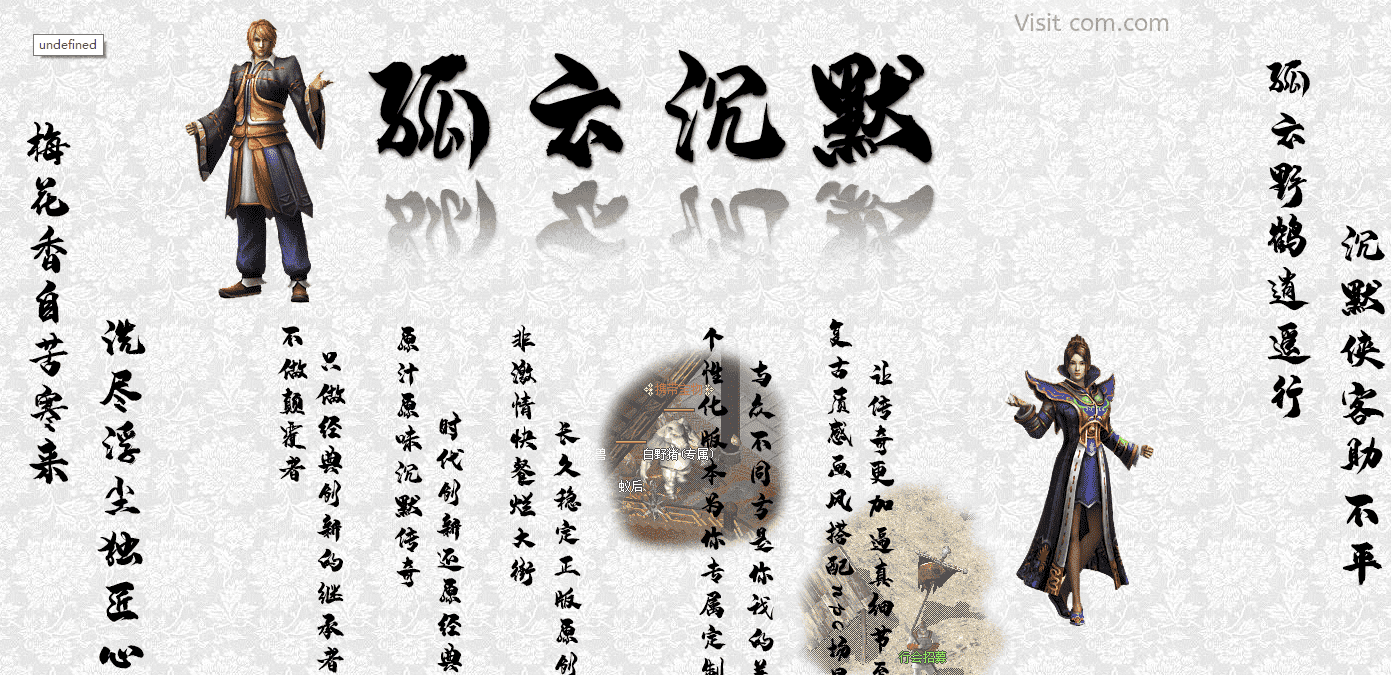 undefined
Visit com.com
孤云沉默
梅花香自苦寒来
洗尽浮尘独匠心
不做颠覆者
只做经典创新的继承者
原汁原味沉默传奇
时代创新还原经典
非激情快餐烂大街
长久稳定正版原创
个性化版本为你专属定制
与众不同才是你我的
复古质感画风搭配npc场
让传奇更加逼真细节
孤云野鹤逍遥行
沉默侠客助不平
白野猪(专属)
蚁后
行会招募